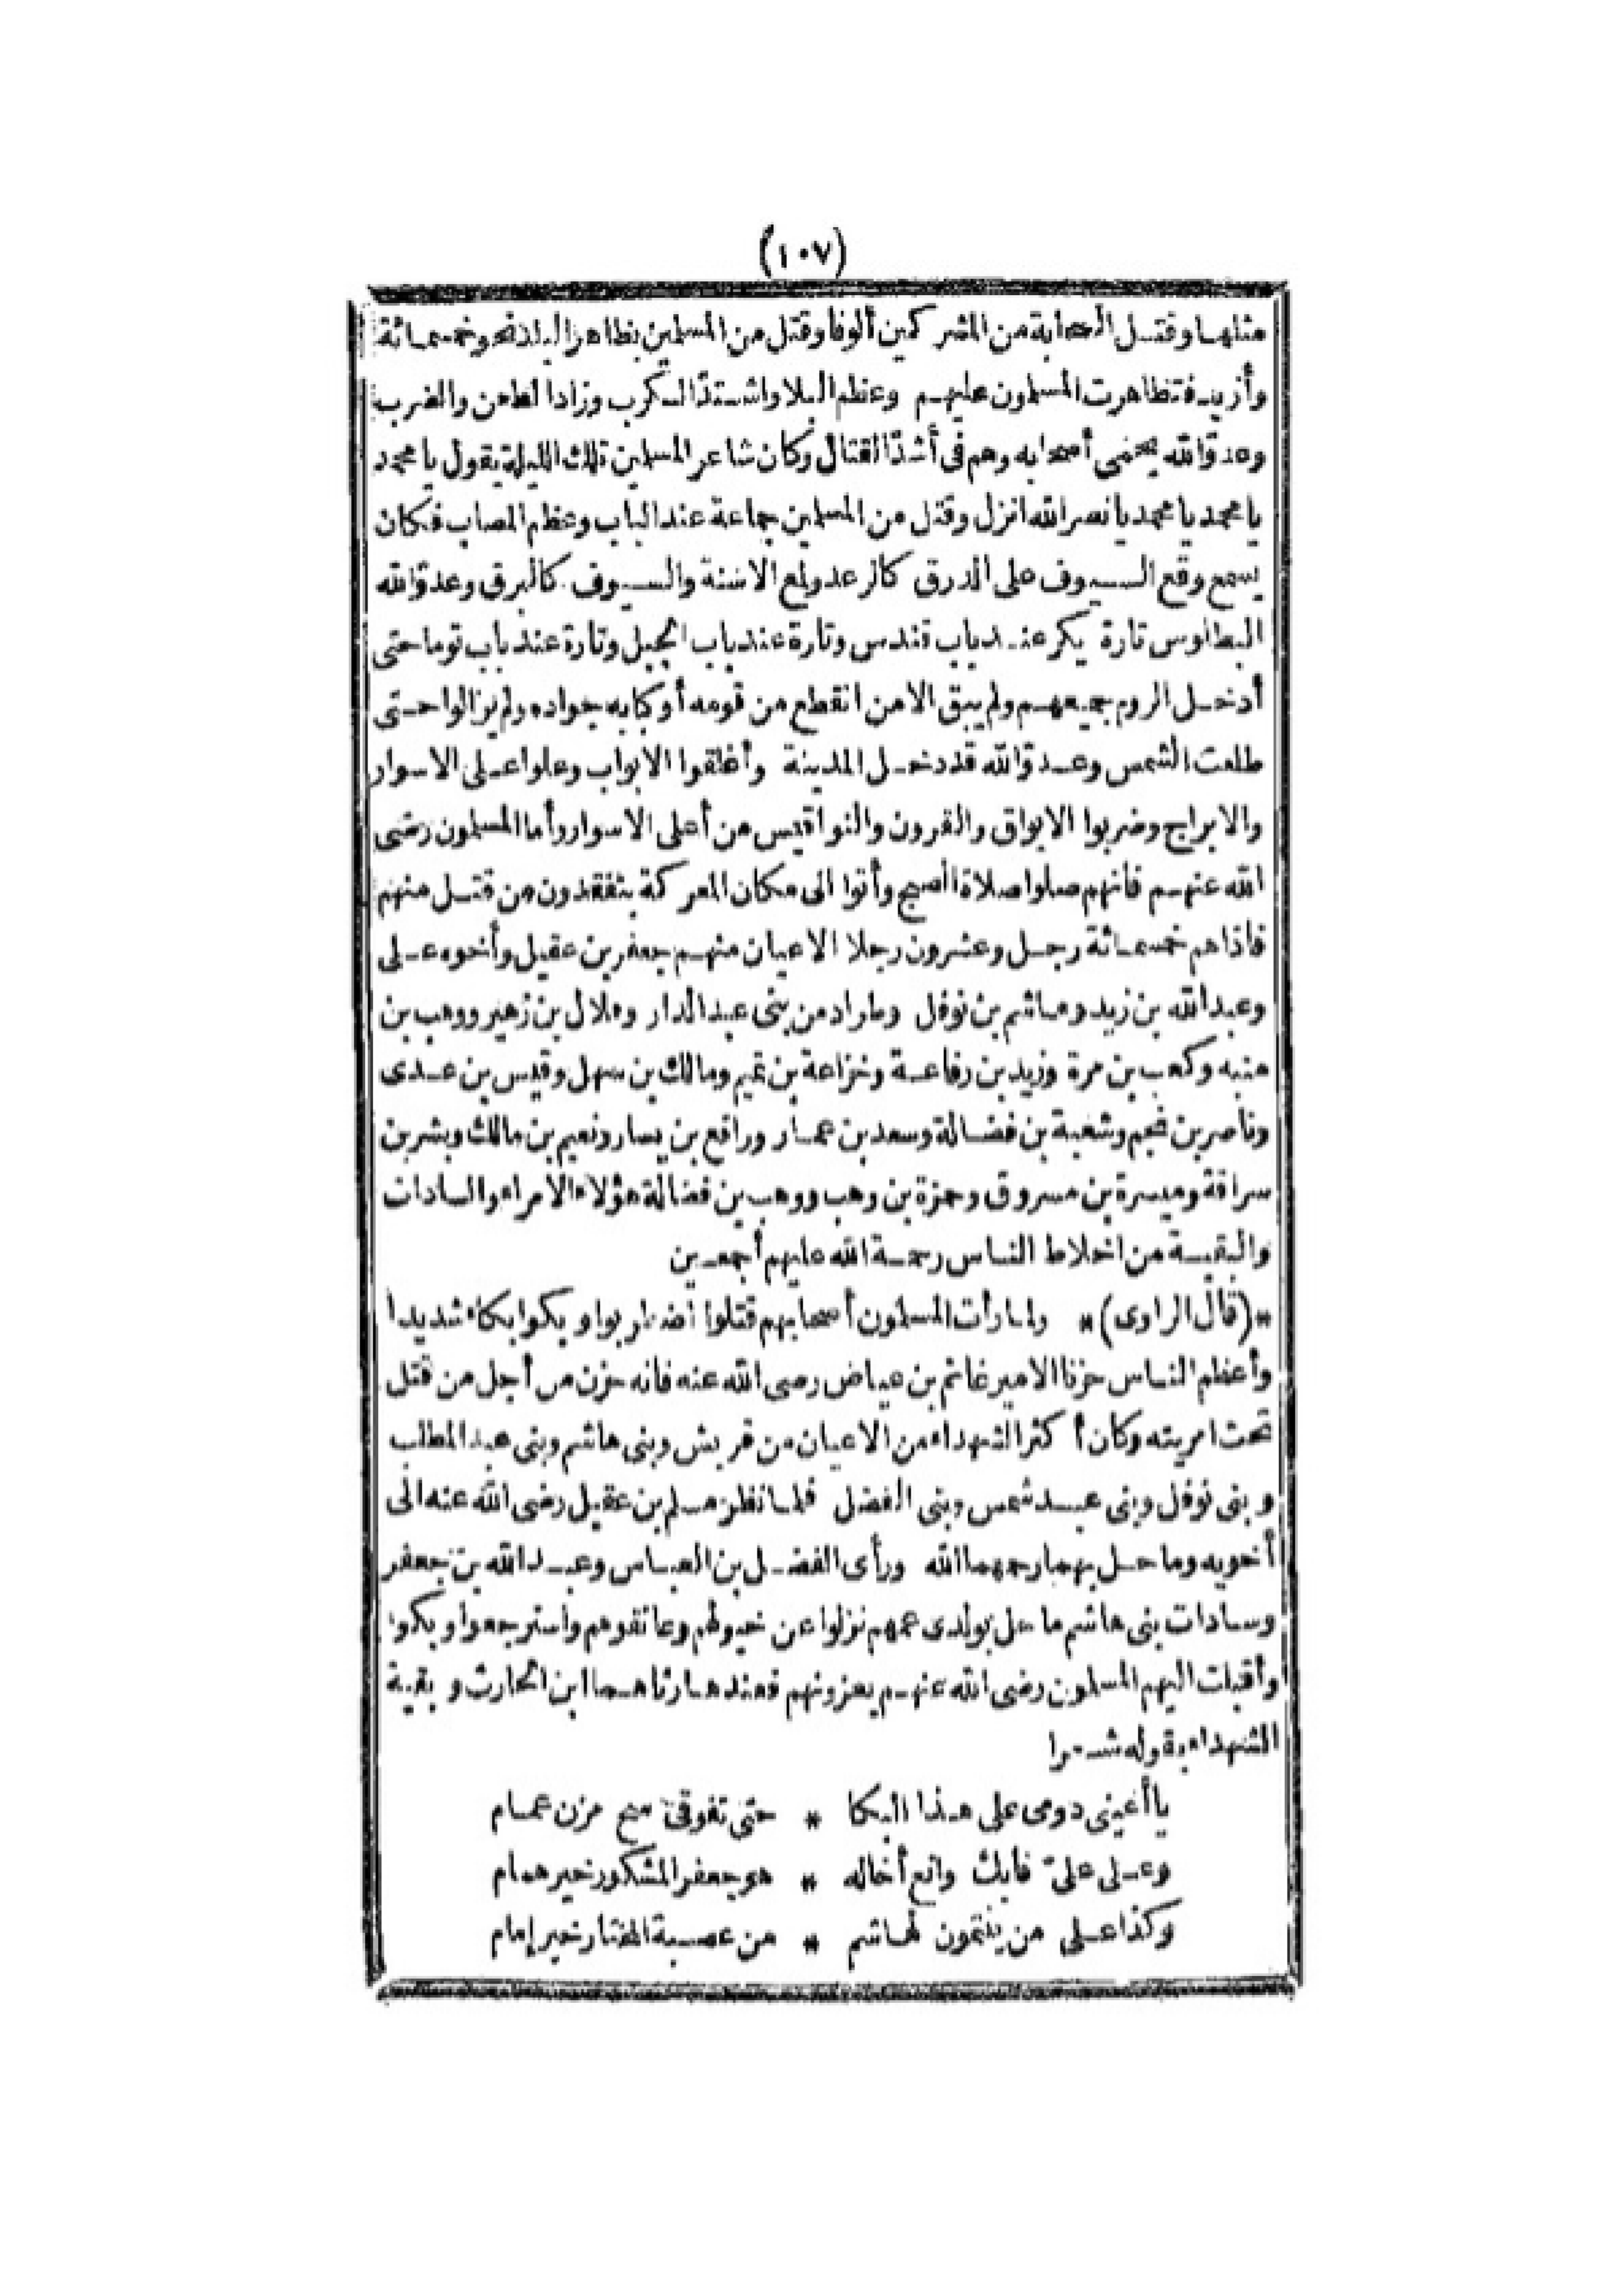 (١٠٧)
مثلها وقتل الصحابة من المشركين ألوفا وقتل من المسلمين بظاهر البلد نحو خمسمائة
وأزيد فتظاهرت المسلمون عليهم وعظم البلا واشتد الكرب وزاد الطعن والضرب
وعدوّ الله يحمى أصحابه وهم فى أشدّ القتال وكان شاعر المسلمين تلك الليلة يقول يا محمد
يا محمد يا محمد يا نصر الله انزل وقتل من المسلمين جماعة عند الباب وعظم المصاب فكان
يسمع وقع السيوف على الدرق كالرعد ولمع الاسنة والسيوف كالبرق وعدوّ الله
البطلوس تارة يكر عند باب قندس وتارة عند باب الجبل وتارة عند باب توما حتى
أدخل الروم جميعهم ولم يبق الا من انقطع من قومه أو كبا به جواده ولم يزالوا حتى
طلعت الشمس وعدوّ الله قد دخل المدينة وأغلقوا الابواب وعلوا على الاسوار
والابراج وضربوا الابواق والقرون والنواقيس من أعلى الاسوار وأما المسلمون رضى
الله عنهم فانهم صلوا صلاة الصبح وأتوا الى مكان المعركة يتفقدون من قتل منهم
فاذا هم خمسمائة رجل وعشرون رجلا الاعيان منهم جعفر بن عقيل وأخوه على
وعبد الله بن زيد وهاشم بن نوفل وطراد من بنى عبد الدار وهلال بن زهير ووهب بن
منبه وكعب بن مرة وزيد بن رفاعة وخزاعة بن تميم ومالك بن سهل وقيس بن عدى
وناصر بن وشعبة بن فضالة وسعد بن عمار ورافع بن يسار ونعيم بن مالك وبشر بن
سراقة وميسرة بن مسروق وحمزة بن وهب ووهب بن فضالة هؤلاء الامراء والسادات
والبقية من اخلاط الناس رحمة الله عليهم أجمعين
*(قال الراوى)* ولما رأت المسلمون أصحابهم قتلوا اضطربوا وبكوا بكاء شديدا
وأعظم الناس حزنا الامير غانم بن عياض رضى الله عنه فانه حزن من أجل من قتل
تحت امريته وكان أكثر الشهداء من الاعيان من قريش وبنى هاشم وبنى عبد المطلب
وبنى نوفل وبنى عبد شمس وبنى الفضل فلما نظر مسلم بن عقيل رضى الله عنه الى
أخويه وما حل بهما رحمهما الله ورأى الفضل بن العباس وعبد الله بن جعفر
وسادات بنى هاشم ما حل بولدى عمهم نزلوا عن خيولهم وعانقوهم واسترجعوا وبكوا
وأقبلت اليهم المسلمون رضى الله عنهم يعزونهم فعندها رثاهما ابن الحارث وبقية
الشهداء بقوله شعرا
يا أعينى دومى على هذا البكا * حتى تفوقى سح مزن غمام
وعلى علىّ فابك وانع أخا له * هو جعفر المشكور خير همام
وكذا على من ينتمون لهاشم * من عصبة المختار خير إمام